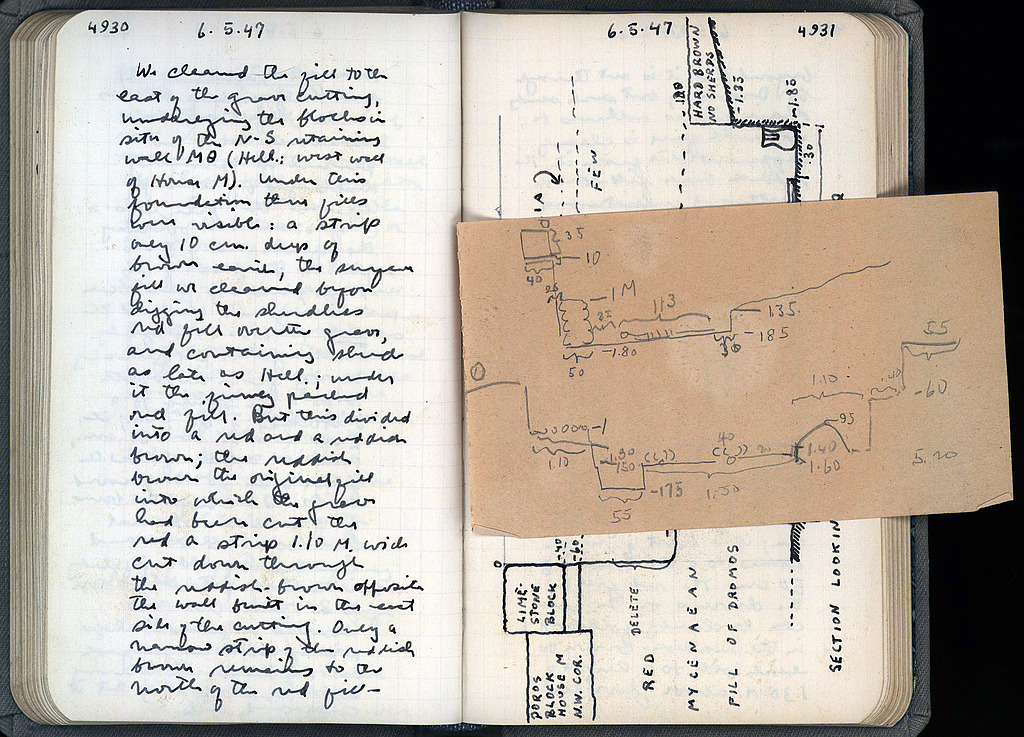 4930
6.5.47
We cleaned the fill to the
east of the grave cutting,
underlying the blocks in
situ of the N-S retaining
wall MΘ (Hell.: west wall
of House M). Under this
foundation three fills
were visible: a strip
only 10 cm. deep of
brown earth, the surface
fill we cleaned before
digging the sherdless
red fill over the grave,
and containing sherds
as late as Hell.; under
it the pinkey
red fill. But this divided
into a red and a reddish
brown; the reddish
brown the original fill
into which the grave
had been cut the
red a strip 1.10 M. wide
cut down through
the reddish-brown opposite
the wall built in the east
side of the cutting. Only a
narrow strip of the reddish
brown remains to the
north of the red fill-
6.5.47
4931
HARD BROWN
NO SHERDS
-1.35
-1.85
.30
FEW
35
10
40
-1M
113
135
-185
-1.80
50
55
1.10
-60
-95
-1
1.10
1.30
150
40
20
1.40
1.60
5.20
-175
1.50
55
0
-40
-60
LIME-
STONE
BLOCK
POROS
BLOCK
HOUSE M
N.W. COR.
RED
DELETE
MYCENAEAN
FILL OF DROMOS
SECTION LOOKIN